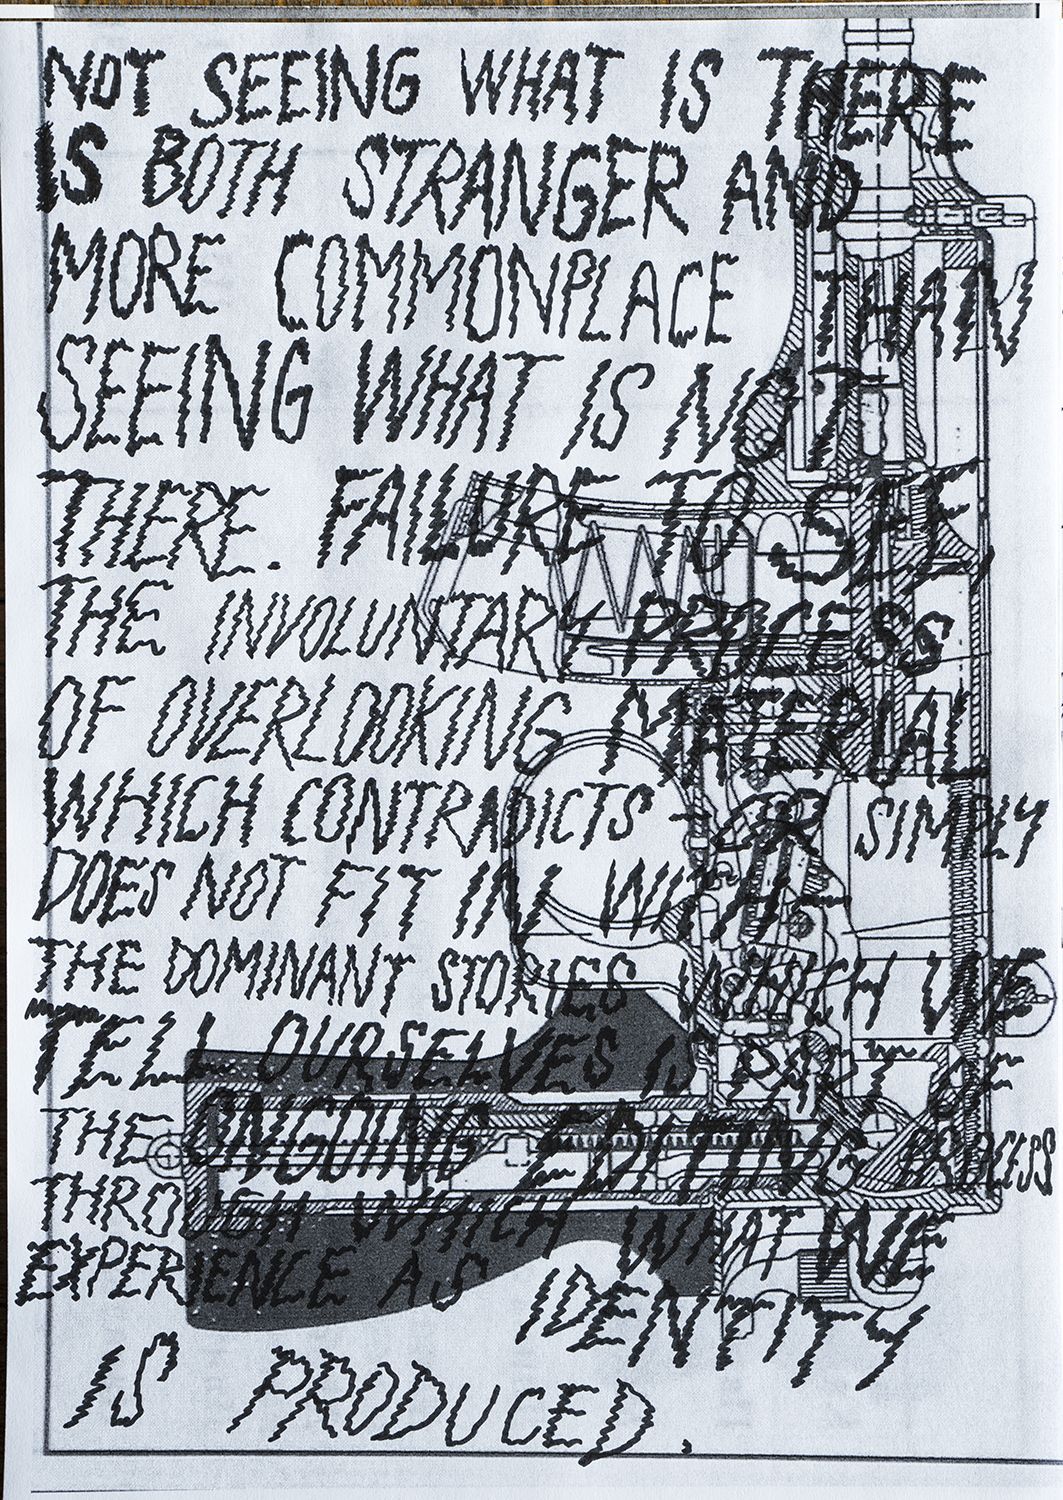 NOT SEEING WHAT IS THERE
IS BOTH STRANGER AND
MORE COMMONPLACE THAN
SEEING WHAT IS NOT
THERE. FAILURE TO SEE,
THE INVOLUNTARY PROCESS
OF OVERLOOKING MATERIAL
WHICH CONTRADICTS - OR SIMPLY
DOES NOT FIT IN WITH -
THE DOMINANT STORIES WHICH WE
TELL OURSELVES IS PART OF
THE ONGOING EDITING PROCESS
THROUGH WHICH WHAT WE
EXPERIENCE AS IDENTITY
IS PRODUCED.